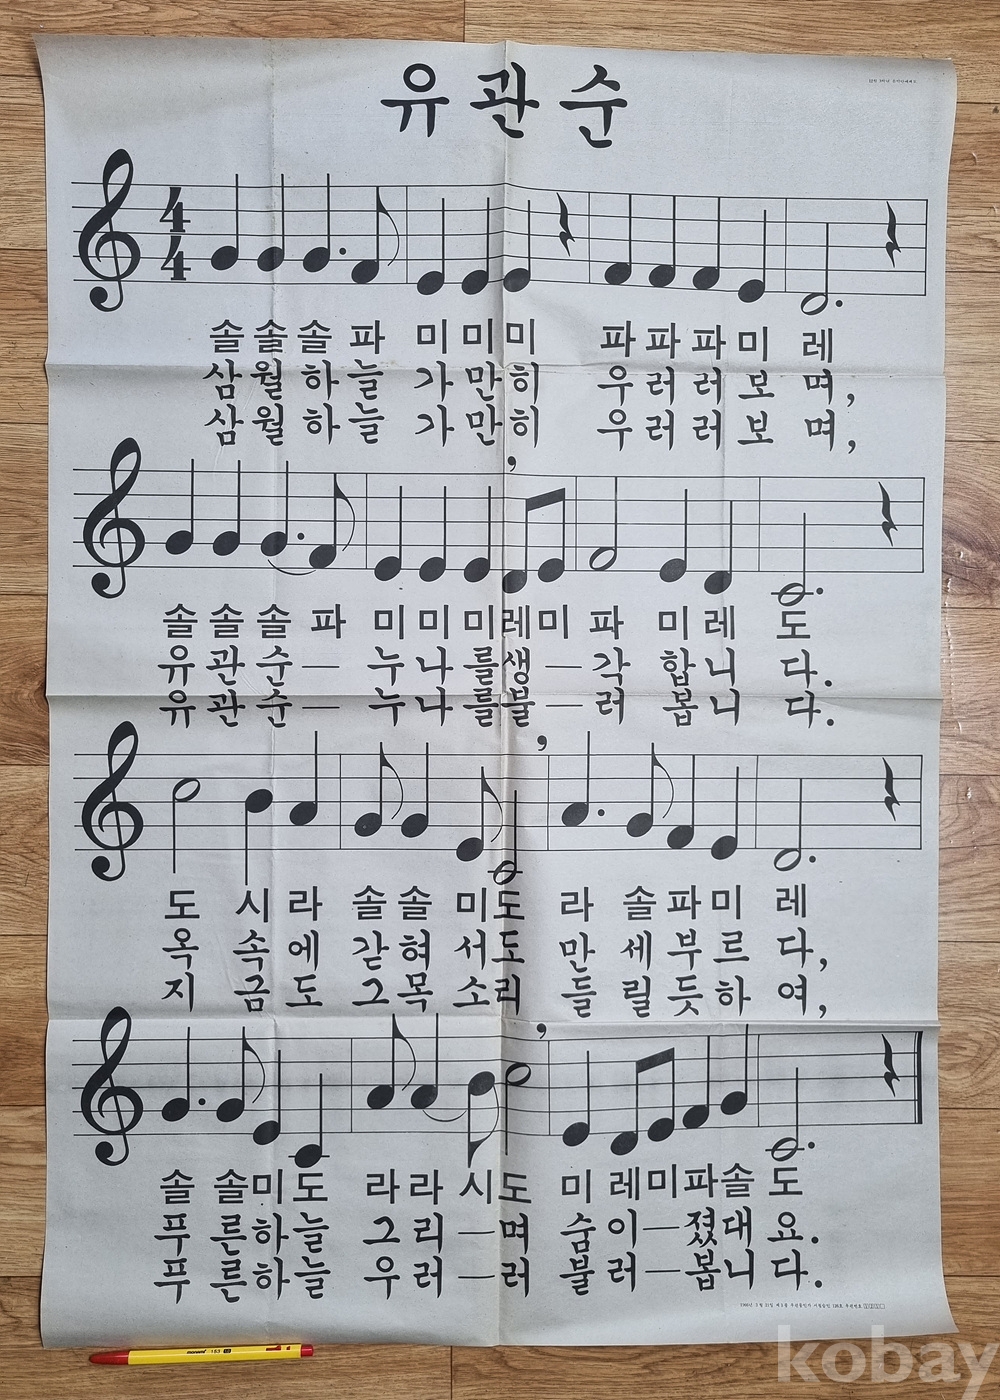 유관순
4
4
솔 솔 솔 파 미 미 미 파 파 파 미 레
삼 월 하 늘 가 만 히 우 러 러 보 며,
삼 월 하 늘 가 만 히 우 러 러 보 며,
솔 솔 솔 파 미 미 미 레 미 파 미 레 도
유 관 순 — 누 나 를 생 — 각 합 니 다.
유 관 순 — 누 나 를 불 — 러 봅 니 다.
도 시 라 솔 솔 미 도 라 솔 파 미 레
옥 속 에 갇 혀 서 도 만 세 부 르 다,
지 금 도 그 목 소 리 들 릴 듯 하 여,
솔 솔 미 도 라 라 시 도 미 레 미 파 솔 도
푸 른 하 늘 그 리 — 며 숨 이 — 졌 대 요.
푸 른 하 늘 우 러 — 러 불 러 — 봅 니 다.
monami 153
kobay